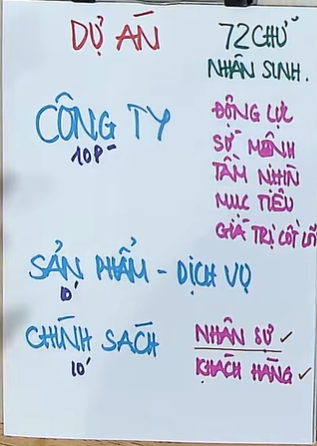 DỰ ÁN
72 CHỮ
NHÂN SINH.
CÔNG TY
10P-
ĐỘNG LỰC
SỨ MỆNH
TẦM NHÌN
MỤC TIÊU
GIÁ TRỊ CỐT LÕI
SẢN PHẨM - DỊCH VỤ
10'
CHÍNH SÁCH
10'
NHÂN SỰ ✓
KHÁCH HÀNG ✓